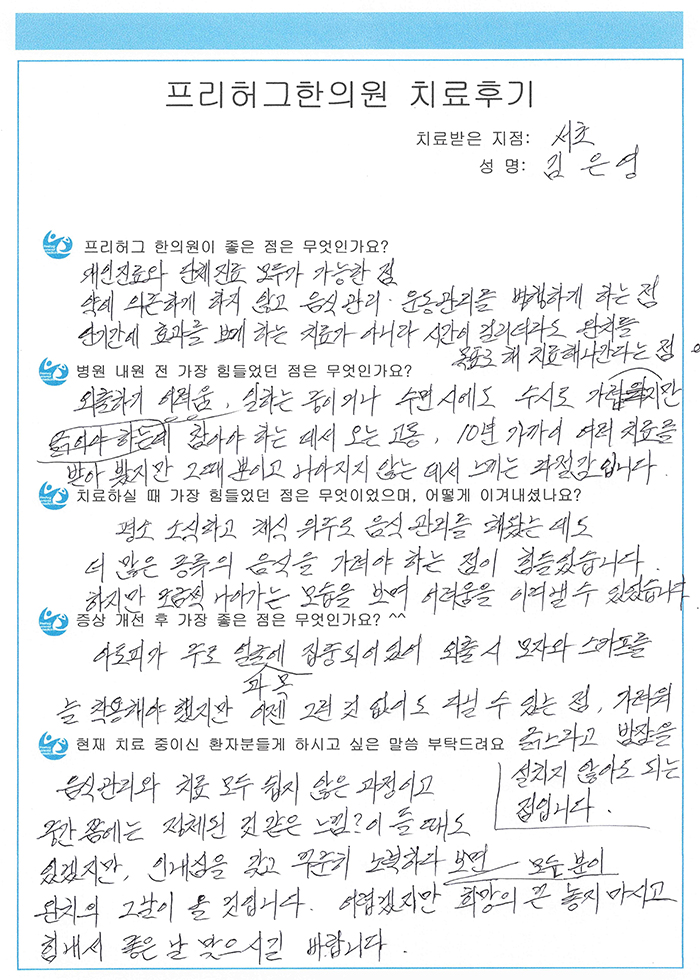 프리허그한의원 치료후기
치료받은 지점: 서초
성 명: 김은영
프리허그 한의원이 좋은 점은 무엇인가요?
개인진료와 단체진료 모두가 가능한 점
약에 의존하게 하지 않고 음식관리·운동관리를 병행하게 하는 점
단기간에 효과를 보게 하는 치료가 아니라 시간이 걸리더라도 완치를
목표로 해 치료해나간다는 점
병원 내원 전 가장 힘들었던 점은 무엇인가요?
외출하기 어려움, 일하는 중이거나 수면 시에도 수시로 가렵지만
참아야 하는 데서 오는 고통, 10년 가까이 여러 치료를
받아 봤지만 그때 뿐이고 나아지지 않는 데서 느끼는 좌절감입니다.
치료하실 때 가장 힘들었던 점은 무엇이었으며, 어떻게 이겨내셨나요?
평소 소식하고 채식 위주로 음식 관리를 해왔는데도
더 많은 종류의 음식을 가려야 하는 점이 힘들었습니다.
하지만 조금씩 나아가는 모습을 보며 어려움을 이겨낼 수 있었습니다.
증상 개선 후 가장 좋은 점은 무엇인가요? ^^
아토피가 주로 얼굴에 집중되어 있어 외출 시 모자와 스카프를
과 목
늘 착용해야 했지만 이젠 그런 것 없이도 다닐 수 있는 점, 가려워
긁느라고 밤잠을
설치지 않아도 되는
점입니다.
현재 치료 중이신 환자분들게 하시고 싶은 말씀 부탁드려요
음식관리와 치료 모두 쉽지 않은 과정이고
중간 쯤에는 정체된 것 같은 느낌?이 들 때도
있겠지만, 인내심을 갖고 꾸준히 노력하다 보면 모든 분이
완치의 그날이 올 것입니다. 어렵겠지만 희망의 끈 놓지 마시고
힘내서 좋은 날 맞으시길 바랍니다.